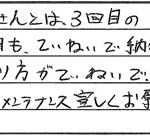 さんとは、3回目の
目も、ていねいで納
り方がていねいで、
メンテナンス宜しくお